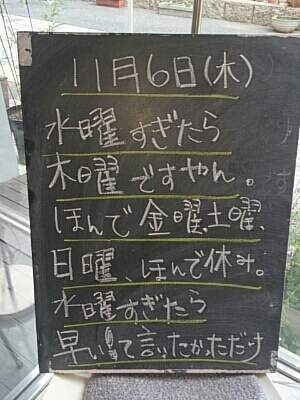 11月6日(木)
水曜すぎたら
木曜ですやん。
ほんで金曜、土曜、
日曜、ほんで休み。
水曜すぎたら
早いって言いたかっただけ